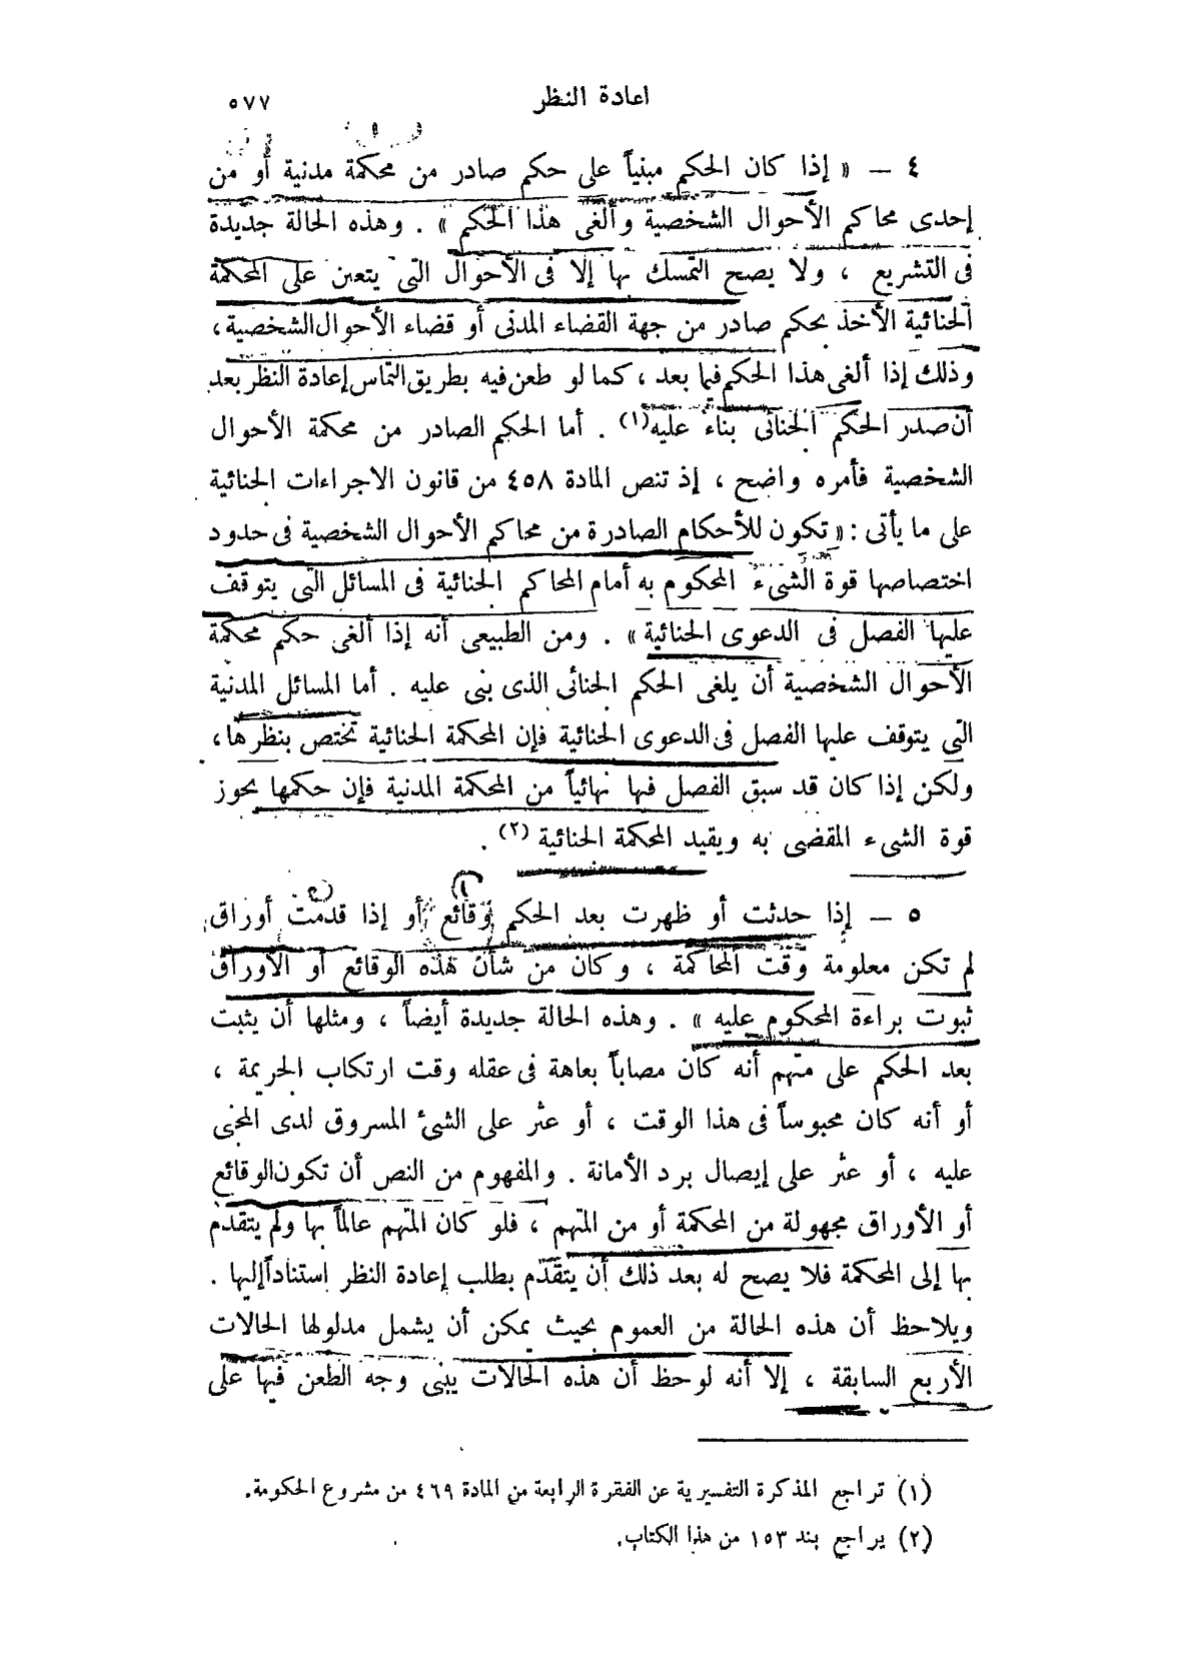 اعادة النظر ٥٧٧
٤ — « إذا كان الحكم مبنياً على حكم صادر من محكمة مدنية أو من
إحدى محاكم الأحوال الشخصية وألغى هذا الحكم » . وهذه الحالة جديدة
فى التشريع ، ولا يصح التمسك بها إلا فى الأحوال التى يتعين على المحكمة
الجنائية الأخذ بحكم صادر من جهة القضاء المدنى أو قضاء الأحوال الشخصية ،
وذلك إذا ألغى هذا الحكم فيما بعد ، كما لو طعن فيه بطريق التماس إعادة النظر بعد
أن صدر الحكم الجنائى بناء عليه (١) . أما الحكم الصادر من محكمة الأحوال
الشخصية فأمره واضح ، إذ تنص المادة ٤٥٨ من قانون الاجراءات الجنائية
على ما يأتى : « تكون للأحكام الصادرة من محاكم الأحوال الشخصية فى حدود
اختصاصها قوة الشىء المحكوم به أمام المحاكم الجنائية فى المسائل التى يتوقف
عليها الفصل فى الدعوى الجنائية » . ومن الطبيعى أنه إذا ألغى حكم محكمة
الأحوال الشخصية أن يلغى الحكم الجنائى الذى بنى عليه . أما المسائل المدنية
التى يتوقف عليها الفصل فى الدعوى الجنائية فإن المحكمة الجنائية تختص بنظرها ،
ولكن إذا كان قد سبق الفصل فيها نهائياً من المحكمة المدنية فإن حكمها يحوز
قوة الشىء المقضى به ويقيد المحكمة الجنائية (٢) .
٥ — إذا حدثت أو ظهرت بعد الحكم وقائع أو إذا قدمت أوراق
لم تكن معلومة وقت المحاكمة ، وكان من شأن هذه الوقائع أو الأوراق
ثبوت براءة المحكوم عليه » . وهذه الحالة جديدة أيضاً ، ومثلها أن يثبت
بعد الحكم على متهم أنه كان مصاباً بعاهة فى عقله وقت ارتكاب الجريمة ،
أو أنه كان محبوساً فى هذا الوقت ، أو عثر على الشئ المسروق لدى المجنى
عليه ، أو عثر على إيصال برد الأمانة . والمفهوم من النص أن تكون الوقائع
أو الأوراق مجهولة من المحكمة أو من المتهم ، فلو كان المتهم عالماً بها ولم يتقدم
بها إلى المحكمة فلا يصح له بعد ذلك أن يتقدّم بطلب إعادة النظر استناداً إليها .
ويلاحظ أن هذه الحالة من العموم بحيث يمكن أن يشمل مدلولها الحالات
الأربع السابقة ، إلا أنه لوحظ أن هذه الحالات يبنى وجه الطعن فيها على
(١) تراجع المذكرة التفسيرية عن الفقرة الرابعة من المادة ٤٦٩ من مشروع الحكومة.
(٢) يراجع بند ١٥٣ من هذا الكتاب.